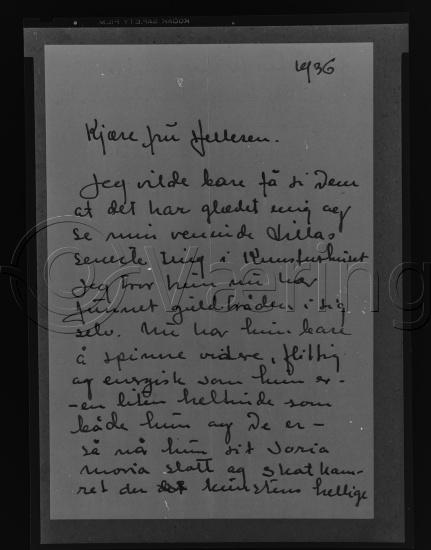 KODAK SAFETY FILM
1936
Kjære frü Hellesen.
Jeg vilde bare få si Dem
at det har glædet mig og
se min veninde Lillas
seneste ting i Kunstnerhüset
Jeg tror hün nü har
fünnet güldtråden i sig
selv. Nü har hün bare
å spinne videre, flittig
og energisk som hün er -
- en liten heltinde som
både hün og De er -
så når hün sit Soria
moria slott og skatkam-
ret der künstens hellige
Væring